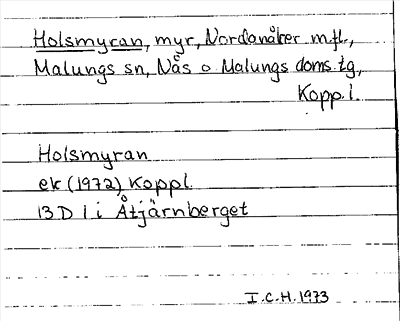 Holsmyran, myr, Nordanåker m.fl.,
Malungs sn, Nås o Malungs doms.tg,
Kopp.l.
Holsmyran
ek (1972) Koppl.
13 D 1 i Åtjärnberget
I.C.H. 1973